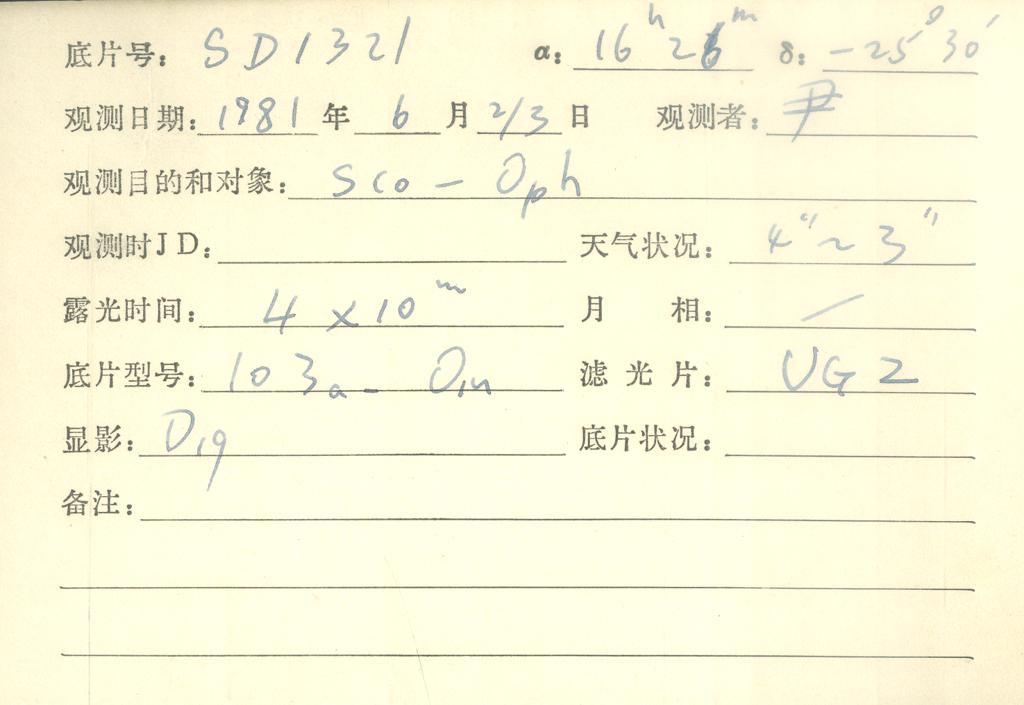 底片号: SD1321 α: 16h 26m δ: -25° 30′
观测日期: 1981 年 6 月 2/3 日 观测者: 尹
观测目的和对象: Sco - Oph
观测时JD: 天气状况: 4″~3″
露光时间: 4 x 10m 月 相: /
底片型号: 103a-O 滤光片: UG2
显影: D19
底片状况:
备注: